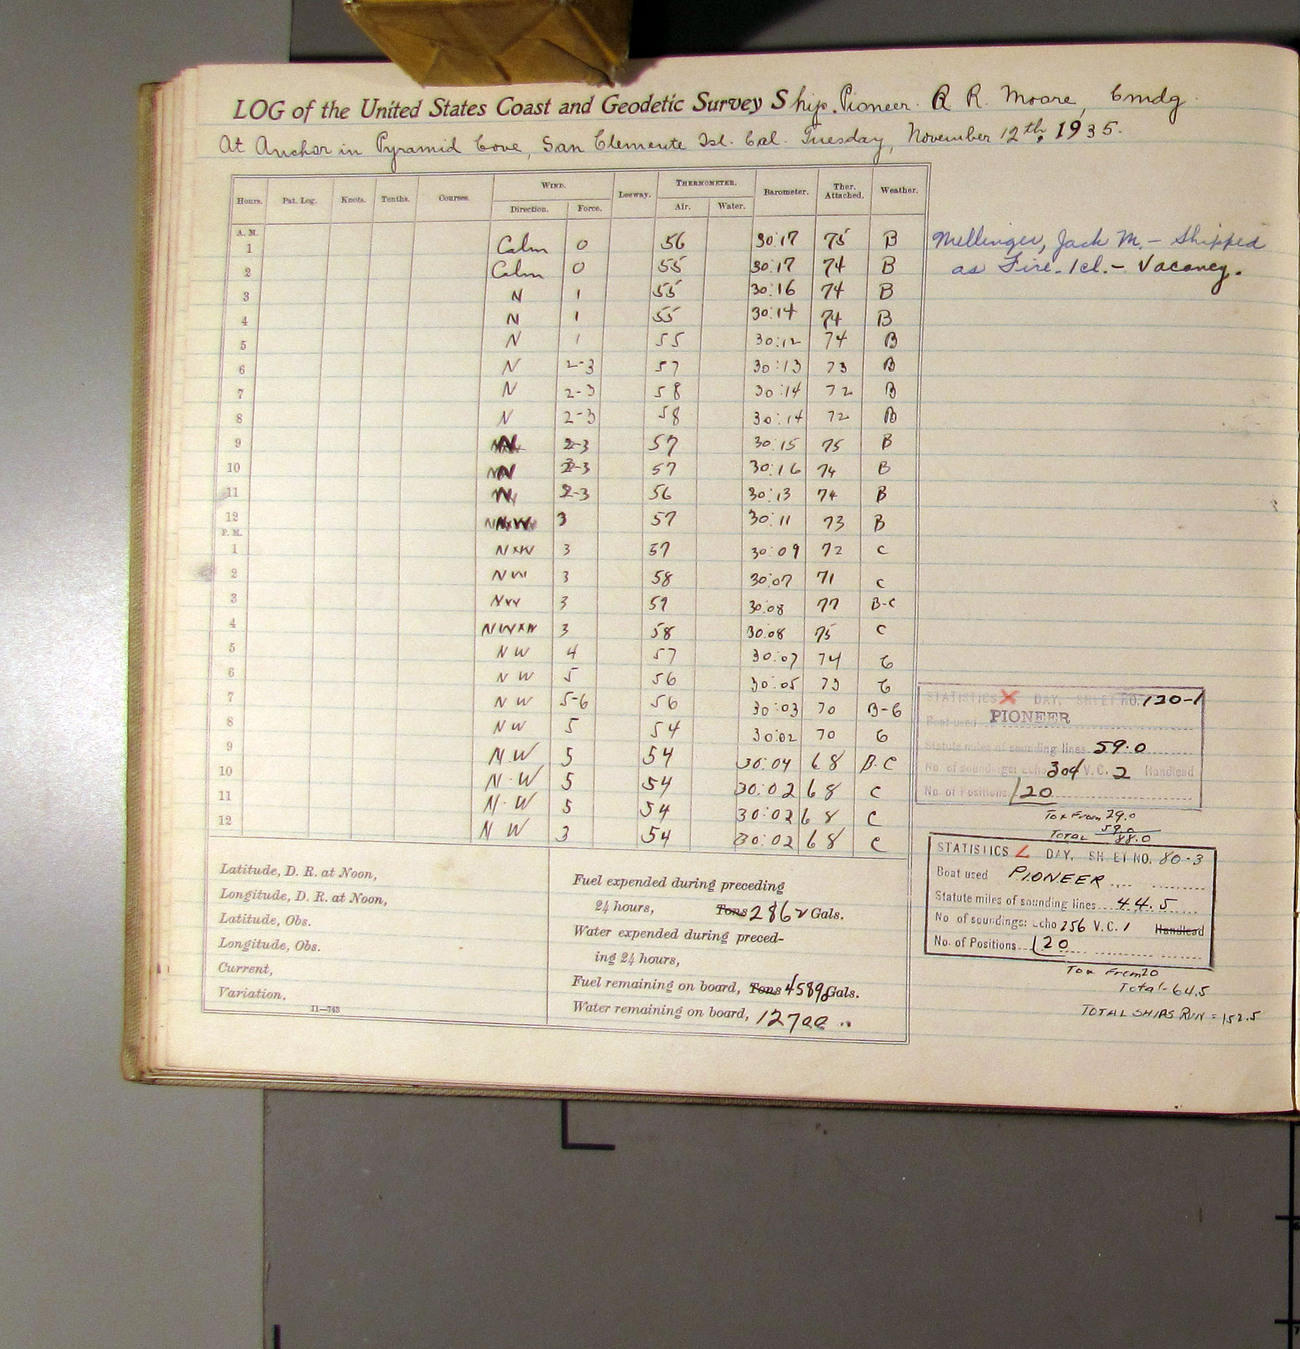 LOG of the United States Coast and Geodetic Survey Ship. Pioneer. R. R. Moore, Cmdg.
At Anchor in Pyramid Cove, San Clemente Isl. Cal. Tuesday, November 12th, 1935.
Hours. Pat. Log. Knots. Tenths. Courses. WIND. Leeway. THERMOMETER. Barometer. Ther. Attached. Weather.
Direction. Force. Air. Water.
A. M.
1 Calm 0 56 30:17 75 B
2 Calm 0 55 30:17 74 B
3 N 1 55 30:16 74 B
4 N 1 55 30:14 74 B
5 N 1 55 30:12 74 B
6 N 2-3 57 30:13 73 B
7 N 2-3 58 30:14 72 B
8 N 2-3 58 30:14 72 B
9 N 2-3 57 30:15 75 B
10 N 2-3 57 30:16 74 B
11 N 2-3 56 30:13 74 B
12 3 57 30:11 73 B
P. M.
1 NxW 3 57 30:09 72 C
2 NW 3 58 30:07 71 C
3 NW 3 59 30:08 77 B-C
4 NWxN 3 58 30:08 75 C
5 NW 4 57 30:07 74 C
6 NW 5 56 30:05 73 C
7 NW 5-6 56 30:03 70 B-C
8 NW 5 54 30:02 70 C
9 NW 5 54 30:04 68 B-C
10 N·W 5 54 30:02 68 C
11 N·W 5 54 30:02 68 C
12 N W 3 54 30:02 68 C
Mellinger, Jack M. - Shipped
as Fire. 1cl. - Vacancy.
STATISTICS X DAY, SHEET NO. 120-1
Boat used PIONEER
Statute miles of sounding lines 59.0
No. of soundings: Echo 304 V.C. 2 Handlead
No. of Positions 120
To & From 29.0
59.0
TOTAL 88.0
STATISTICS L DAY, SHEET NO. 80-3
Boat used PIONEER
Statute miles of sounding lines 44.5
No. of soundings: Echo 256 V.C. 1 Handlead
No. of Positions 120
To & From 20
Total- 64.5
TOTAL SHIPS RUN = 152.5
Latitude, D. R. at Noon,
Longitude, D. R. at Noon,
Latitude, Obs.
Longitude, Obs.
Current,
Variation,
11—743
Fuel expended during preceding
24 hours, Tons 2862 Gals.
Water expended during preced-
ing 24 hours,
Fuel remaining on board, Tons Gals.
Water remaining on board, 12700 "